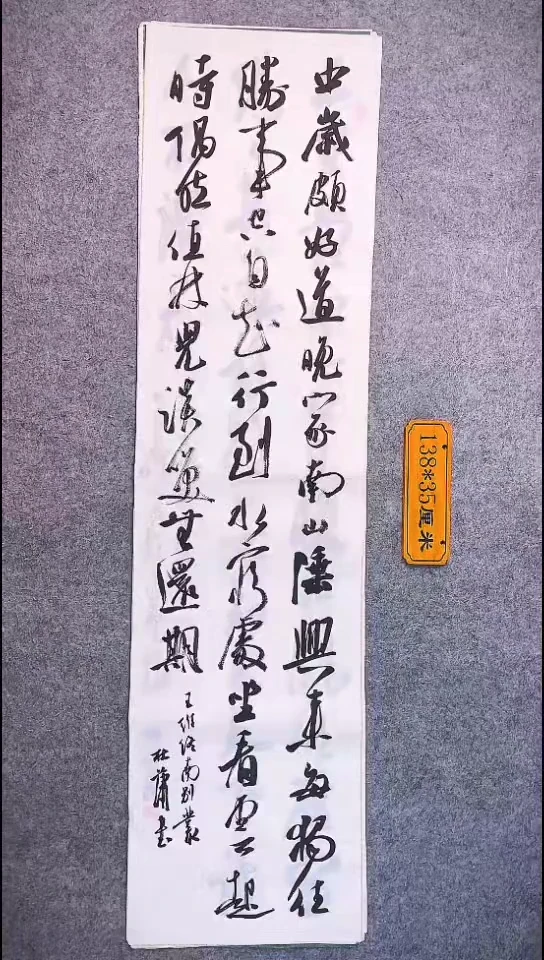 中歲頗好道晚家南山陲興來每獨往
勝事空自知行到水窮處坐看雲起
時偶然值林叟談笑無還期
王維終南別業
杜蕭書
138*35厘米